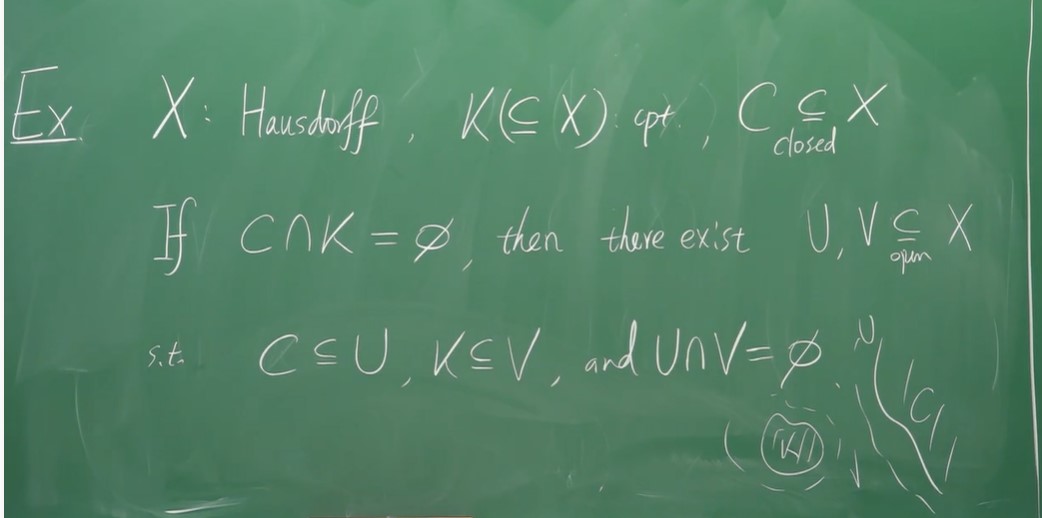 Ex. X: Hausdorff, K(⊆ X): cpt., C ⊆ X
closed
If C∩K = ∅, then there exist U, V ⊆ X
open
s.t. C ⊆ U, K ⊆ V, and U∩V = ∅.
U
C
K
V